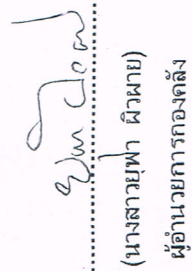 (นางสาวยุฟา ผิวผาย)
ผู้อำนวยการกองคลัง